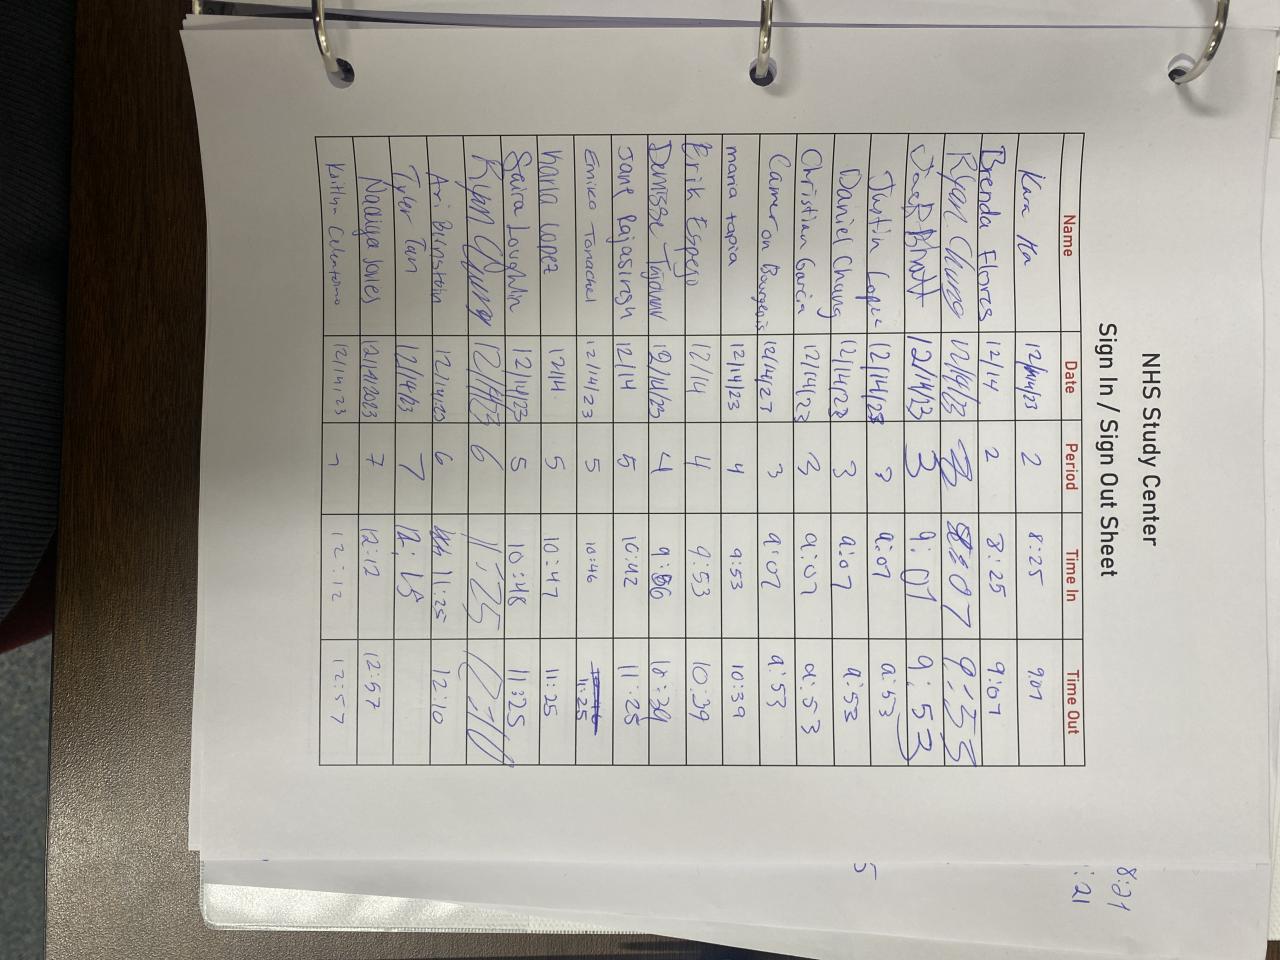 NHS Study Center
Sign In / Sign Out Sheet
Name Date Period Time In Time Out
Kara 12/14/23 2 8:25 9:07
Brenda Flores 12/14 2 8:25 9:07
Ryan Chung 12/14/23 3 9:07 9:53
Bhatt 12/14/23 3 9:07 9:53
Justin Lopez 12/14/23 3 9:07 9:53
Daniel Chang 12/14/23 3 9:07 9:53
Christian Garcia 12/14/23 3 9:07 9:53
Cameron Bourgeois 12/14/23 3 9:07 9:53
maria tapia 12/14/23 4 9:53 10:39
Erik Espejo 12/14 4 9:53 10:39
Denisse 12/14/23 4 9:56 10:39
Jane Rajasingh 12/14 5 10:42 11:25
Emika Tanachel 12/14/23 5 10:46 11:25
Karla Lopez 12/14 5 10:47 11:25
Saira Loughlin 12/14/23 5 10:48 11:25
Ryan Chung 12/14/23 6 11:25 12:10
Ari Burnstein 12/14/23 6 11:25 12:10
Tyler Tan 12/14/23 7
Nadiya Jovies 12/14/2023 7 12:12 12:57
Kaitlyn 12/14/23 7 12:12 12:57
8:21
:21
5